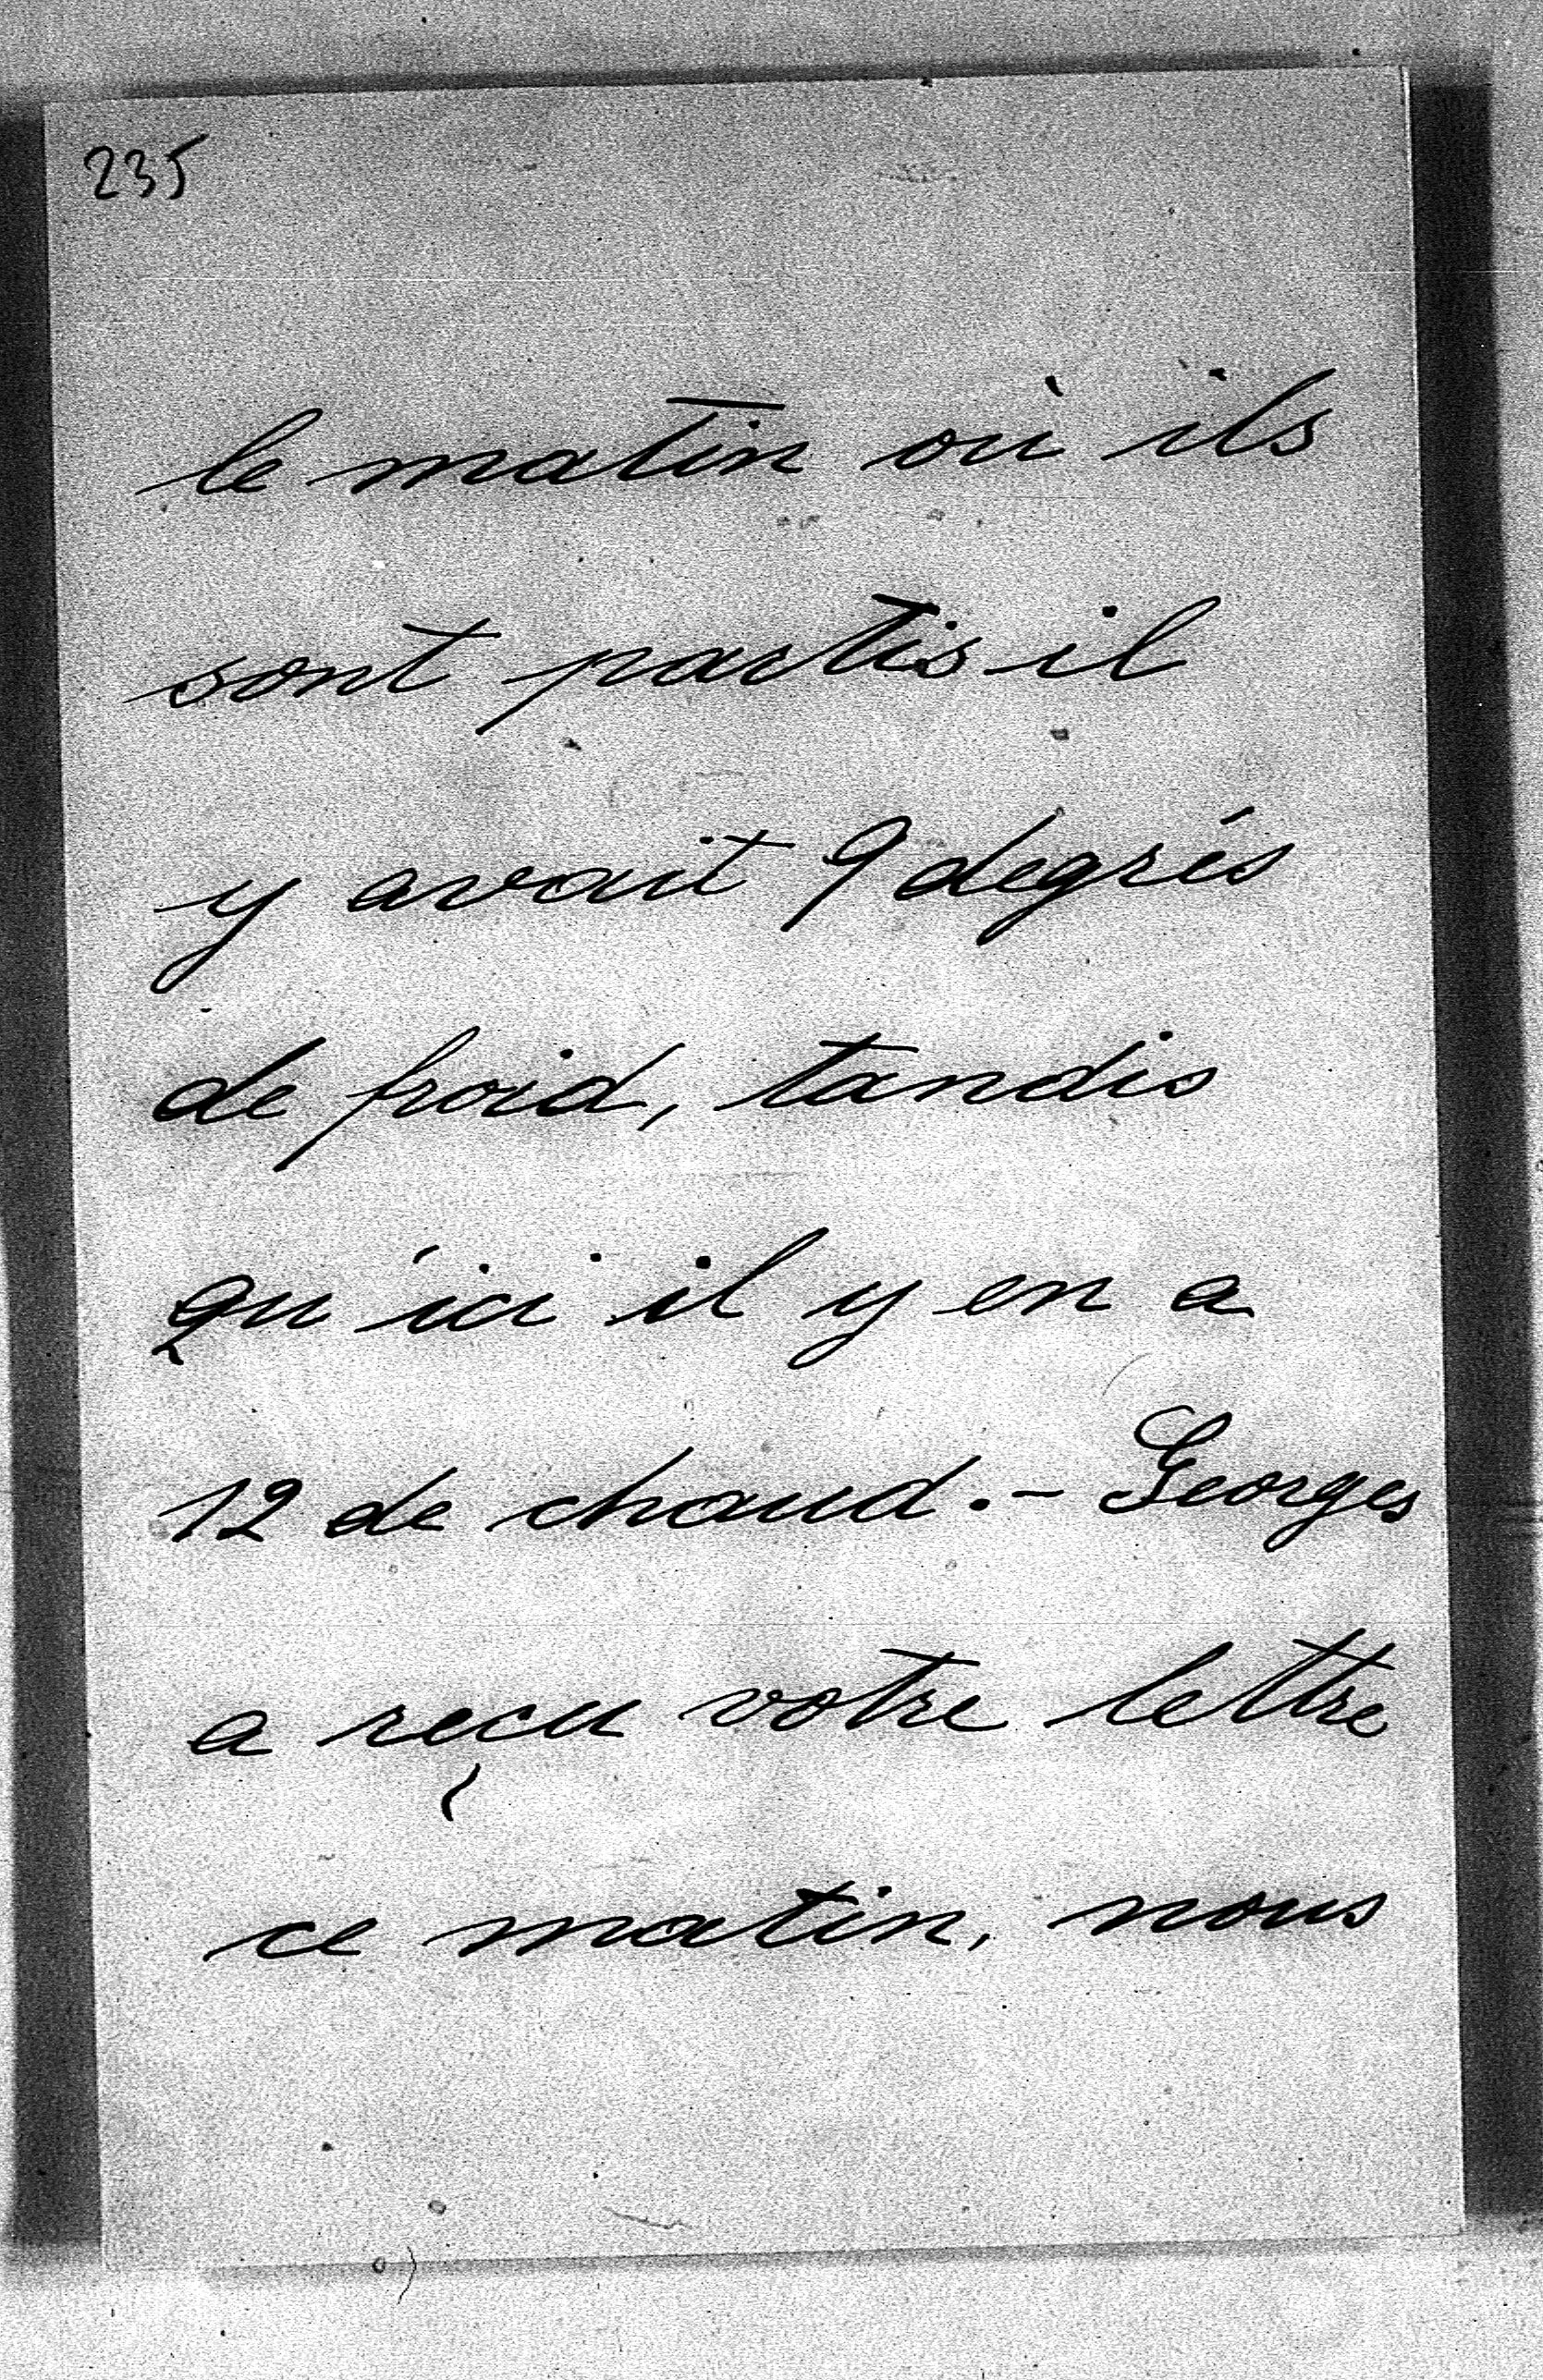 235
le matin où ils
sont partis il
y avait 9 degrés
de froid, tandis
qu'ici il y en a
12 de chaud. - Georges
a reçu votre lettre
ce matin, nous